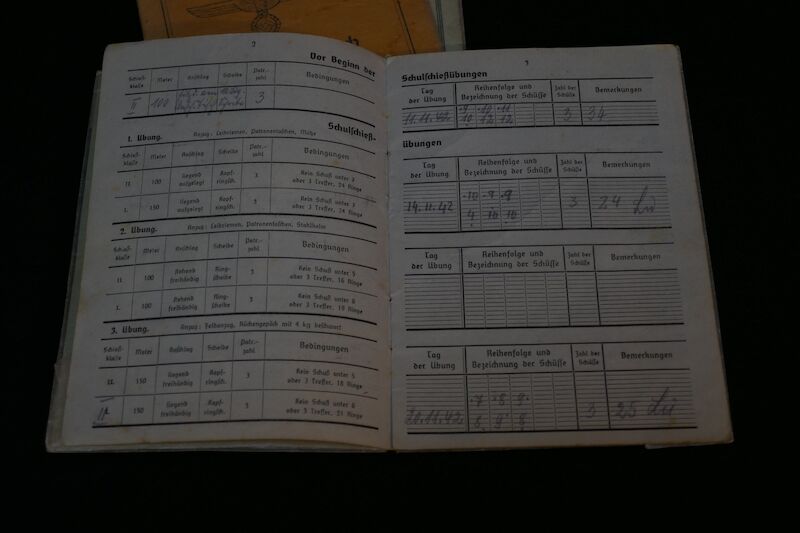 2
Vor Beginn der
Schieß-klasse Meter Anschlag Scheibe Patr.-zahl Bedingungen
II 100 3
Schulschieß-
1. Übung. Anzug: Leibriemen, Patronentaschen, Mütze
Schieß-klasse Meter Anschlag Scheibe Patr.-zahl Bedingungen
II. 100 liegend aufgelegt Kopf-ringsch. 3 Kein Schuß unter 7 oder 3 Treffer, 24 Ringe
I. 150 liegend aufgelegt Kopf-ringsch. 3 Kein Schuß unter 7 oder 3 Treffer, 24 Ringe
2. Übung. Anzug: Leibriemen, Patronentaschen, Stahlhelm
Schieß-klasse Meter Anschlag Scheibe Patr.-zahl Bedingungen
II. 100 stehend freihändig Ring-scheibe 3 Kein Schuß unter 5 oder 3 Treffer, 18 Ringe
I. 100 stehend freihändig Ring-scheibe 3 Kein Schuß unter 6 oder 3 Treffer, Ringe
3. Übung. Anzug: Feldanzug, Rückengepäck mit 4 kg beschwert
Schieß-klasse Meter Anschlag Scheibe Patr.-zahl Bedingungen
II. 150 liegend freihändig Kopf-ringsch. 3 Kein Schuß unter 5 oder 3 Treffer, 18 Ringe
150 liegend freihändig Kopf-ringsch. 3 Kein Schuß unter 6 oder 3 Treffer, 21 Ringe
3
Schulschießübungen
Tag der Übung Reihenfolge und Bezeichnung der Schüsse Zahl der Schüsse Bemerkungen
9 10 11
11.11.42 10 12 12 3 34
übungen
Tag der Übung Reihenfolge und Bezeichnung der Schüsse Zahl der Schüsse Bemerkungen
10 9 9
14.11.42 10 10 3 24
Tag der Übung Reihenfolge und Bezeichnung der Schüsse Zahl der Schüsse Bemerkungen
Tag der Übung Reihenfolge und Bezeichnung der Schüsse Zahl der Schüsse Bemerkungen
7 8 9
20.11.42 8 9 8 3 25